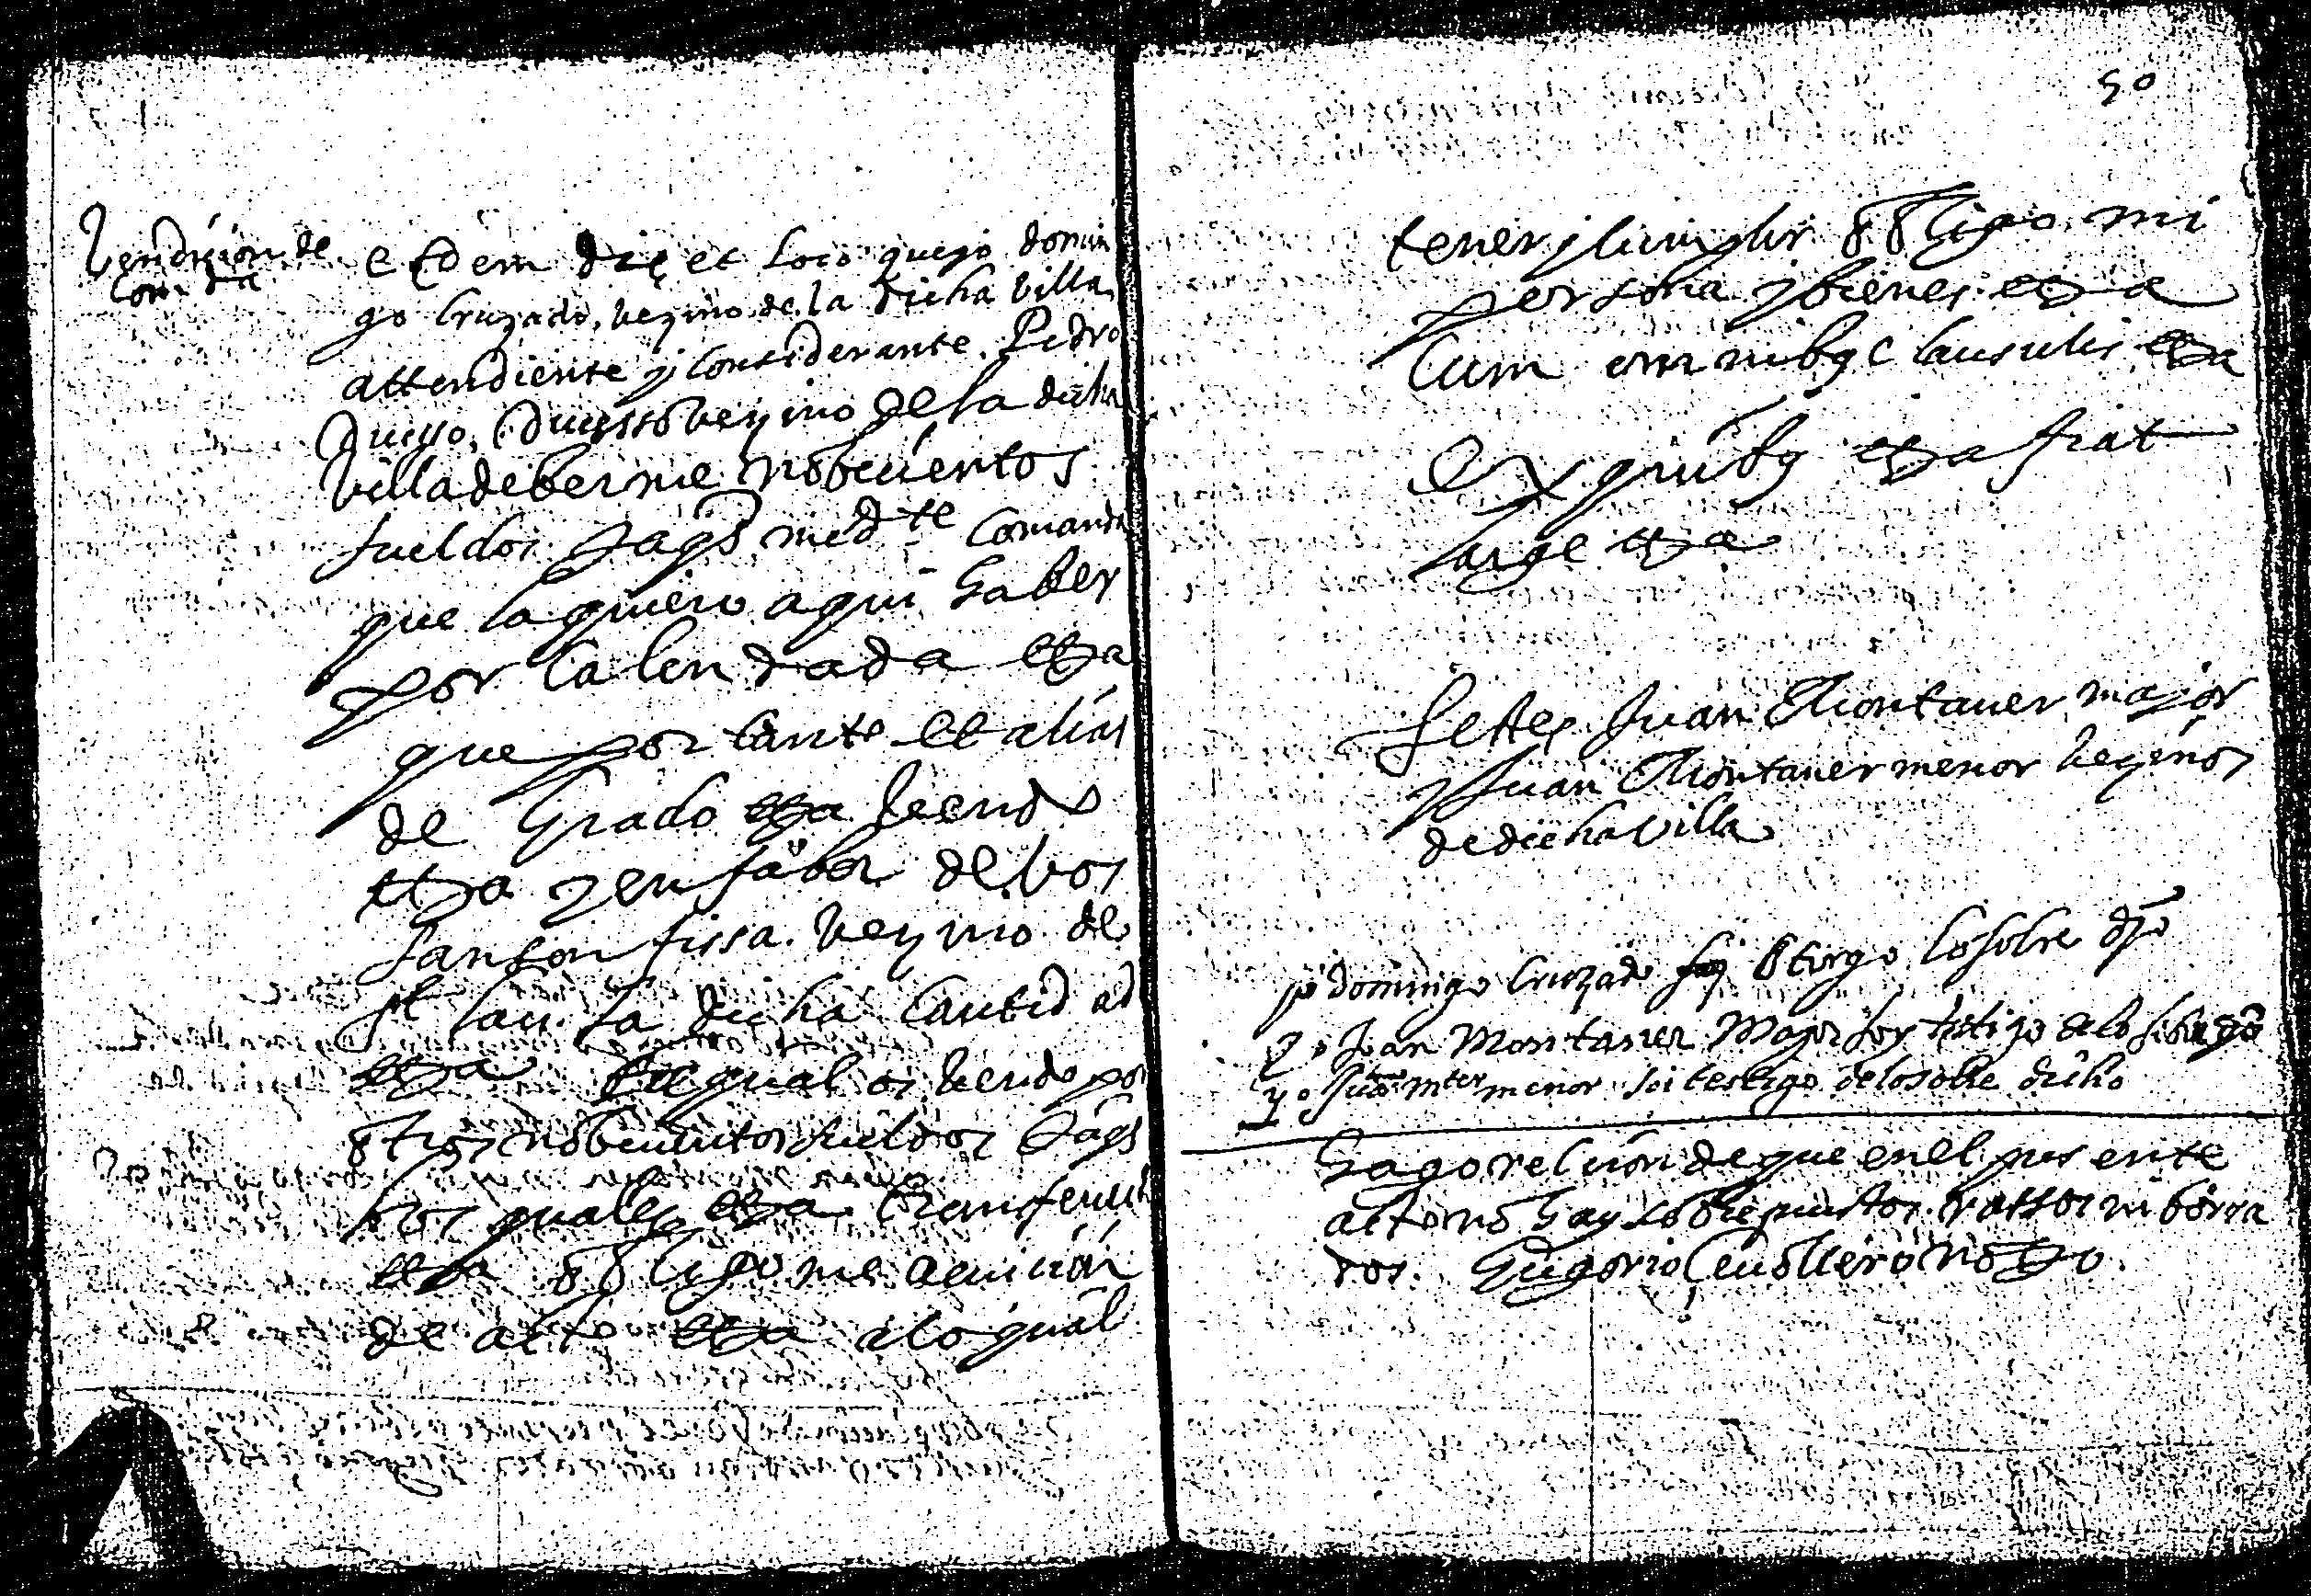 Vendicion de
Comda
Eisdem die et loco que yo domin
go Cruzado, vezino de la dicha villa,
attendiente y considerante Pedro
vezino de la dicha
villa deberme nobecientos
sueldos Jaqs medte Comanda
que la quiero aqui haber
por Calendada etza
que por tante et alias
de Grado etza vendo
etza y en fabor de vos
Sanson vezino de
la dicha Cantidad
etza La qual os vendo por
otros nobecientos sueldos Jaqs
los quales etza transferiendo
etza obligome a eviccion
de acto etza a lo qual
50
tener y cumplir obligo mi
persona y bienes etza
Cum omnibus clausulis etza
ex quibus etza fiat
large etza
Testes Juan Montaner major
y Juan Montaner menor vezinos
de dicha villa
yo domingo Cruzado otorgo lo sobre dho
yo Juan Montaner Major soy testigo de lo sobre dho
yo Juan Mter menor soi testigo de lo sobre dicho
Hago relcion de que en el presente
acto no hay sobrepuestos rassos ni borra
dos. Gregorio notro